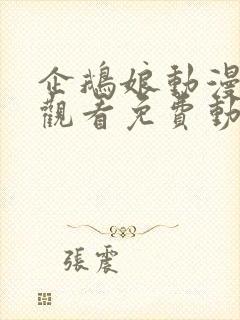 企鵝娘動漫
觀看免費動
張震